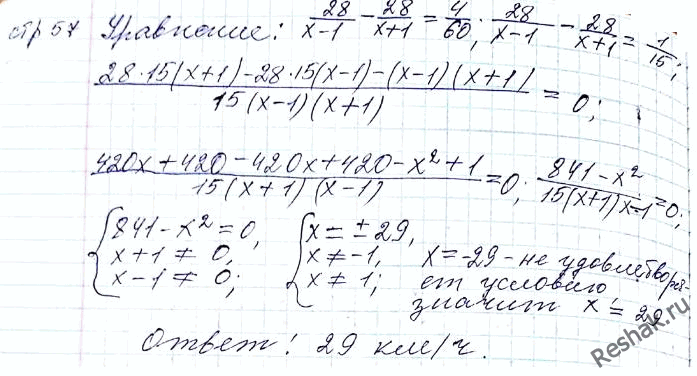 стр 57 Уравнение: 28/(x-1) - 28/(x+1) = 4/60; 28/(x-1) - 28/(x+1) = 1/15;
(28·15(x+1)-28·15(x-1)-(x-1)(x+1))/(15(x-1)(x+1)) = 0;
(420x+420-420x+420-x²+1)/(15(x+1)(x-1)) = 0; (841-x²)/(15(x+1)x-1) = 0;
{841-x²=0, {x=±29,
x+1≠0, x≠-1, x=-29 - не удовлетворя-
x-1≠0; x≠1; ет условию
значит x=29
Ответ: 29 км/ч.
Reshak.ru